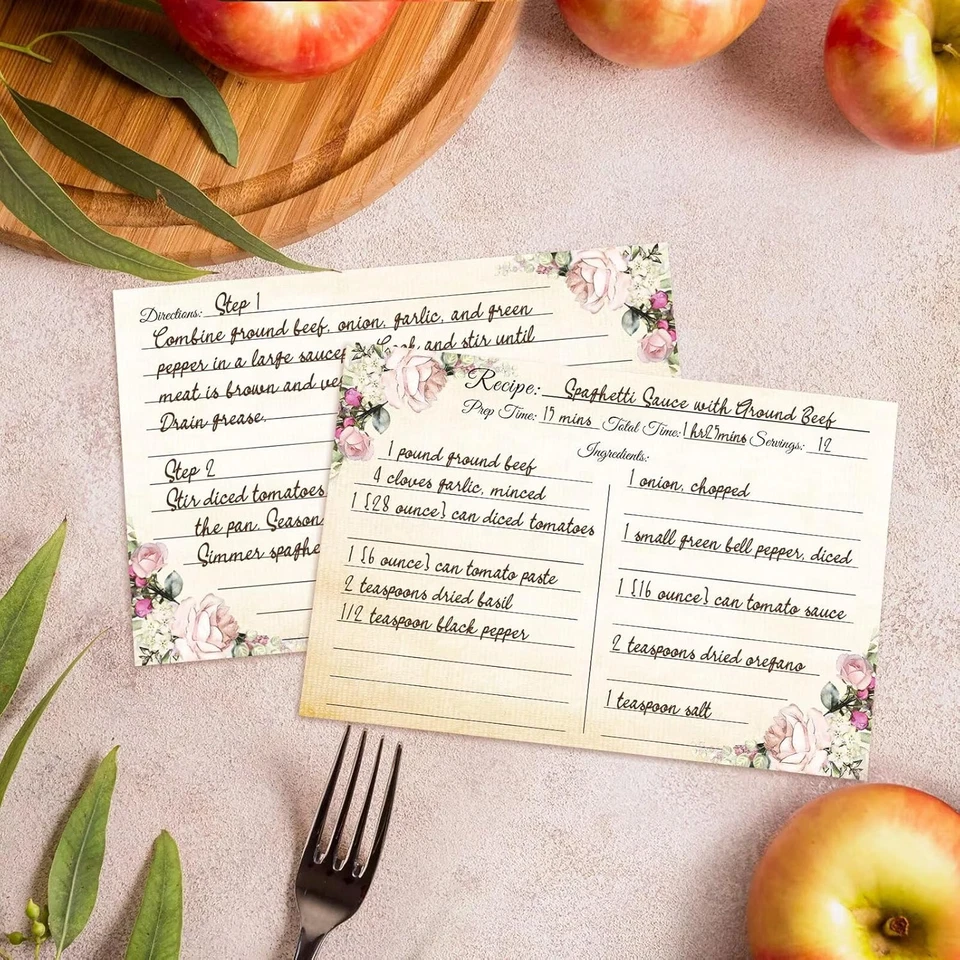 Directions: Step 1
Combine ground beef, onion, garlic, and green
pepper in a large and stir until
meat is brown and
Drain grease.
Step 2
Stir diced tomatoes
the pan. Season
Simmer
Recipe: Spaghetti Sauce with Ground Beef
Prep Time: 15 mins Total Time: 1 hr25mins Servings: 12
Ingredients:
1 pound ground beef
4 cloves garlic, minced
1 {28 ounce} can diced tomatoes
1 {6 ounce} can tomato paste
2 teaspoons dried basil
1/2 teaspoon black pepper
1 onion, chopped
1 small green bell pepper, diced
1 {16 ounce} can tomato sauce
2 teaspoons dried oregano
1 teaspoon salt